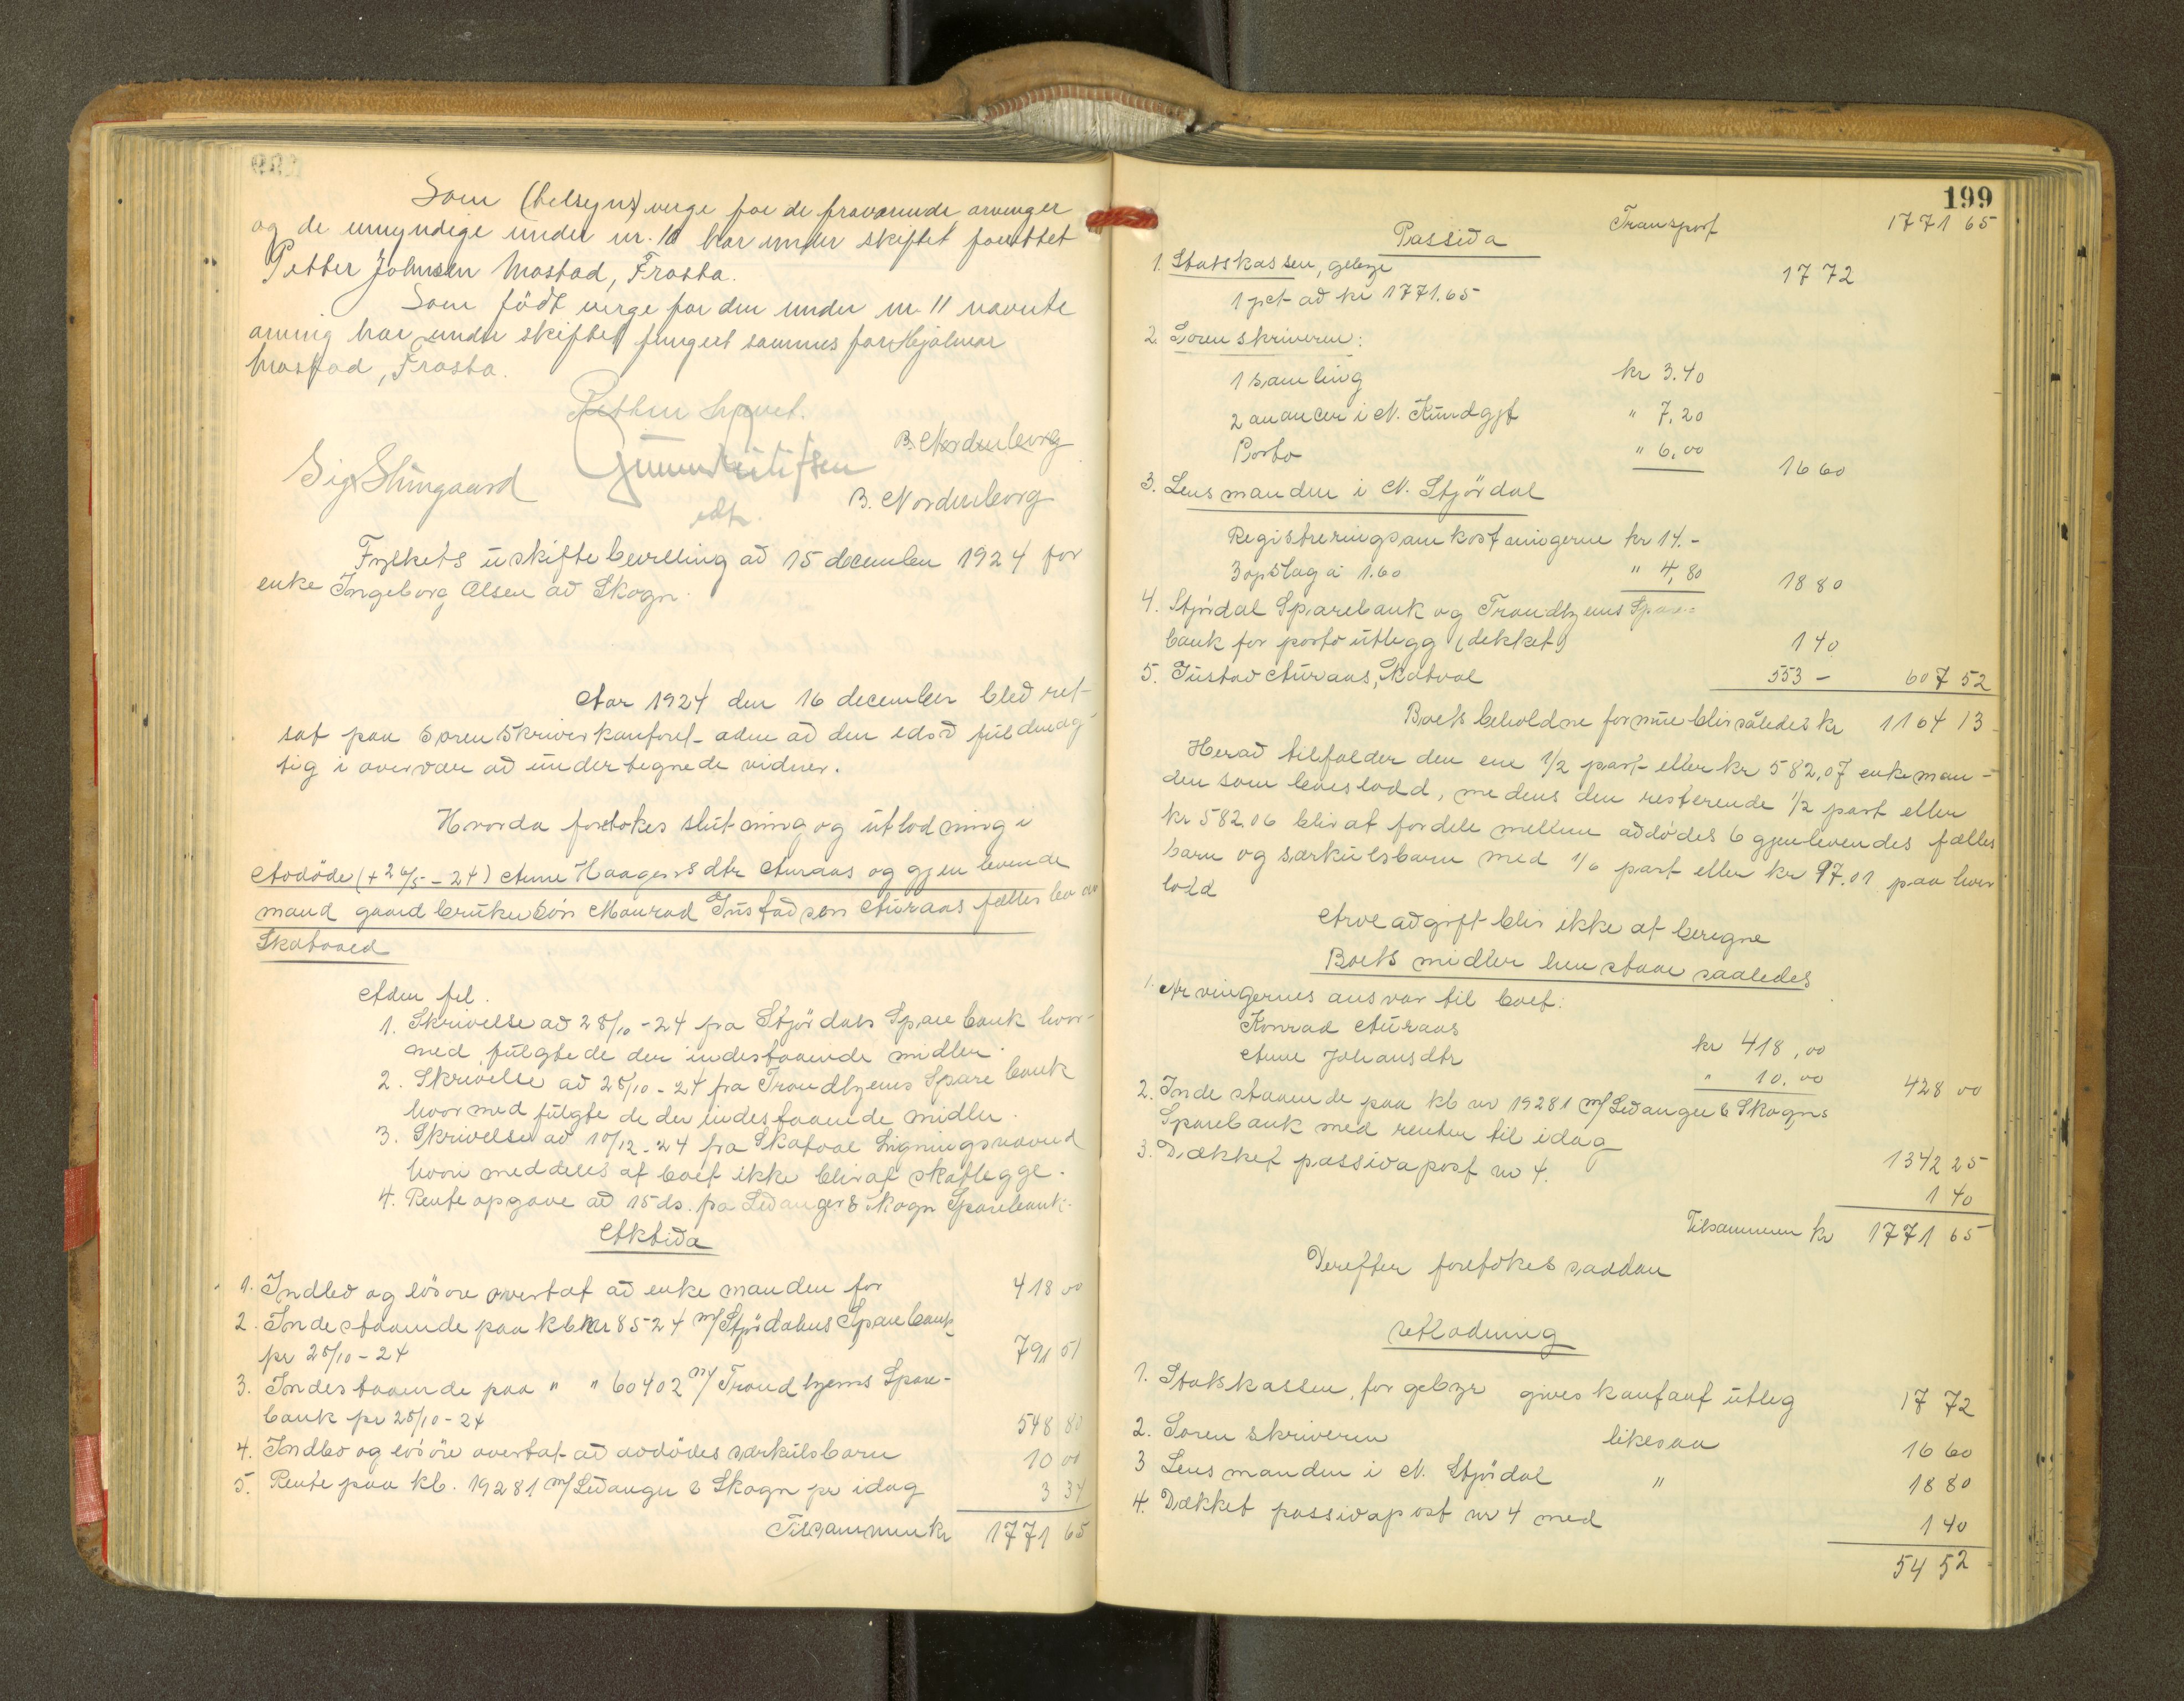 Som (helsyns) verge for de fraværende arvinger
og de umyndige under nr. 10 har under skiftet
Petter Johnsen Mostad, Frosta.
Som född verge for den under nr. 11 nævnte
arving har under skiftet fungert sammes far Hjalmar
Mostad, Frosta.
Retten hævet.
B. Nordenborg
Sig. Stüngaard
B. Nordenborg
Fylkets uskiftebevilling av 15 december 1924 for
enke Ingeborg Olsen av Skogn.
Aar 1924 den 16 december blev ret
sat paa Sorenskriverkontoret adm av den edsv fuldmæg-
tig i overvær av undertegnede vidner.
Hvorda foretokes slutning og utlodning i
Avdöde (+ 26/5 - 24) Anne Haagensdtr Auraas og gjenlevende
mand gaardbruker Gustavsen Auraas fælles bo av
Skatvold
Adm fel.
1. Skrivelse av 28/10 - 24 fra Stjördals Sparebank hvor-
med fulgte de der indestaaende midler.
2. Skrivelse av 28/10 - 24 fra Trondhjems Sparebank
hvormed fulgte de der indestaaende midler.
3. Skrivelse av 10/12 - 24 fra Skatval Ligningsnævnd
hvori meddeles at boet ikke blir at skatlegge.
4. Renteopgave av 15 ds. fra Levanger & Skogn Sparebank.
Aktiva
1. Indbo og lösöre overtat av enkemanden for 418 00
2. Indestaaende paa kb nr 8524 m/ Stjördalens Sparebank
pr 28/10 - 24 791 51
3. Indestaaende paa " " 60402 m/ Trondhjems Spare-
bank pr 28/10 - 24 548 80
4. Indbo og lösöre overtat av avdödes særkulsbarn 10 00
5. Rente paa kb. 19281 m/ Levanger & Skogn pr idag 3 34
Tilsammen kr 1771 65
199
Passiva Transport 1771 65
1. Statskassen, gebyr
1 pct av kr 1771.65 17 72
2. Sorenskriveren:
1 samling kr 3.40
2 anoncer i N. Kundgjt " 7,20
Porto " 6,00 16 60
3. Lensmanden i N. Stjördal
Registreringsomkostningerne kr 14.-
3 opslag à 1.60 " 4,80 18 80
4. Stjördal Sparebank og Trondhjems Spare-
bank for porto utlegg (dekket) 1 40
5. Gustav Auraas, Skatval 553 - 607 52
Boets beholdne formue blir således kr 1164 13
Herav tilfalder den ene 1/2 part eller kr 582,07 enkeman-
den som boeslodd, medens den resterende 1/2 part eller
kr 582.06 blir at fordele mellem avdödes 6 gjenlevendes fælles
barn og særkulsbarn med 1/6 part eller kr 97.01 paa hver
lodd
Arveavgift blir ikke at beregne
Boets midler henstaar saaledes
1. Arvingernes ansvar til boet:
Konrad Auraas kr 418,00
Anne Johansdtr " 10.00 428 00
2. Indestaaende paa kb nr 19281 m/ Levanger & Skogns
Sparebank med renter til idag 1342 25
3. Dækket passiva post nr 4. 1 40
Tilsammen kr 1771 65
Derefter foretokes saadan
utlodning
1. Statskassen, for gebyr gives kontant utleg 17 72
2. Sorenskriveren likesaa 16 60
3 Lensmanden i N. Stjördal " 18 80
4. Dækket passivapost nr 4 med 1 40
54 52